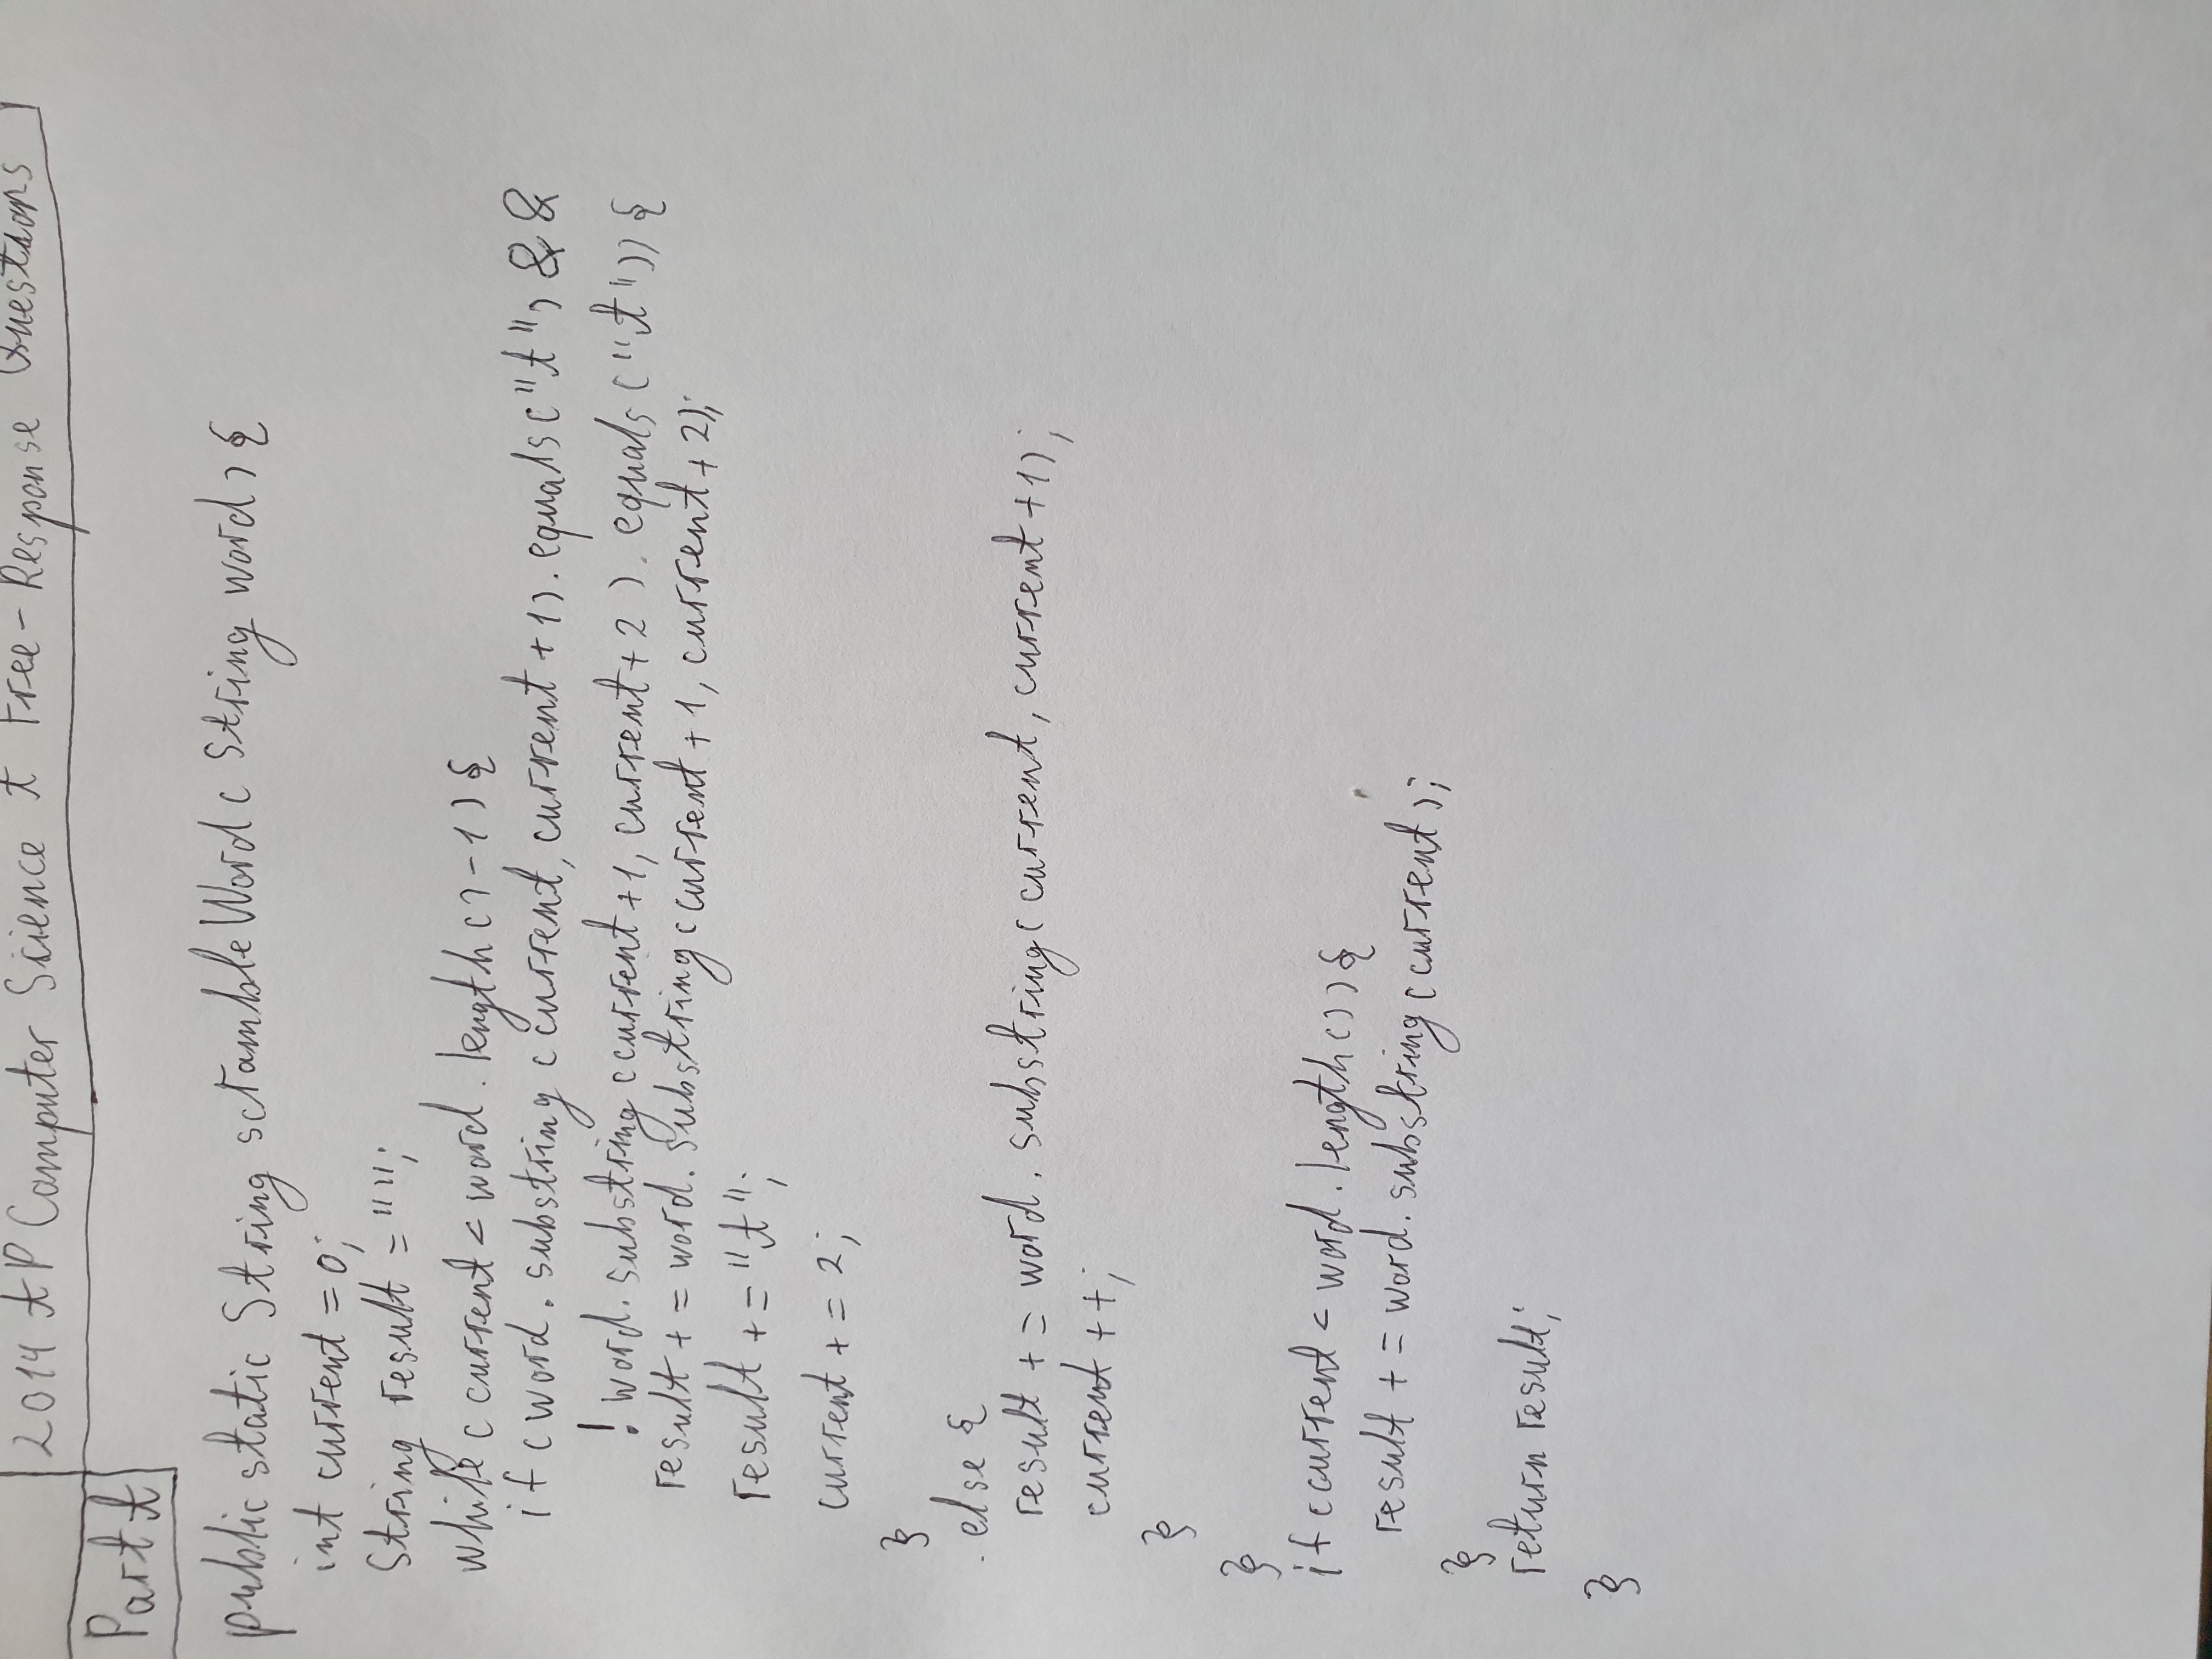 2014 AP Computer Science A Free-Response Questions
Part A
public static String scrambleWord(String word){
int current = 0;
String result = "";
while (current < word.length()-1){
if (word.substring(current, current +1).equals("A") &&
!word.substring(current+1, current+2).equals("A")){
result += word.substring(current+1, current+2);
result += "A";
current += 2;
}
else {
result += word.substring(current, current+1);
current ++;
}
}
if (current < word.length()){
result += word.substring(current);
}
return result;
}